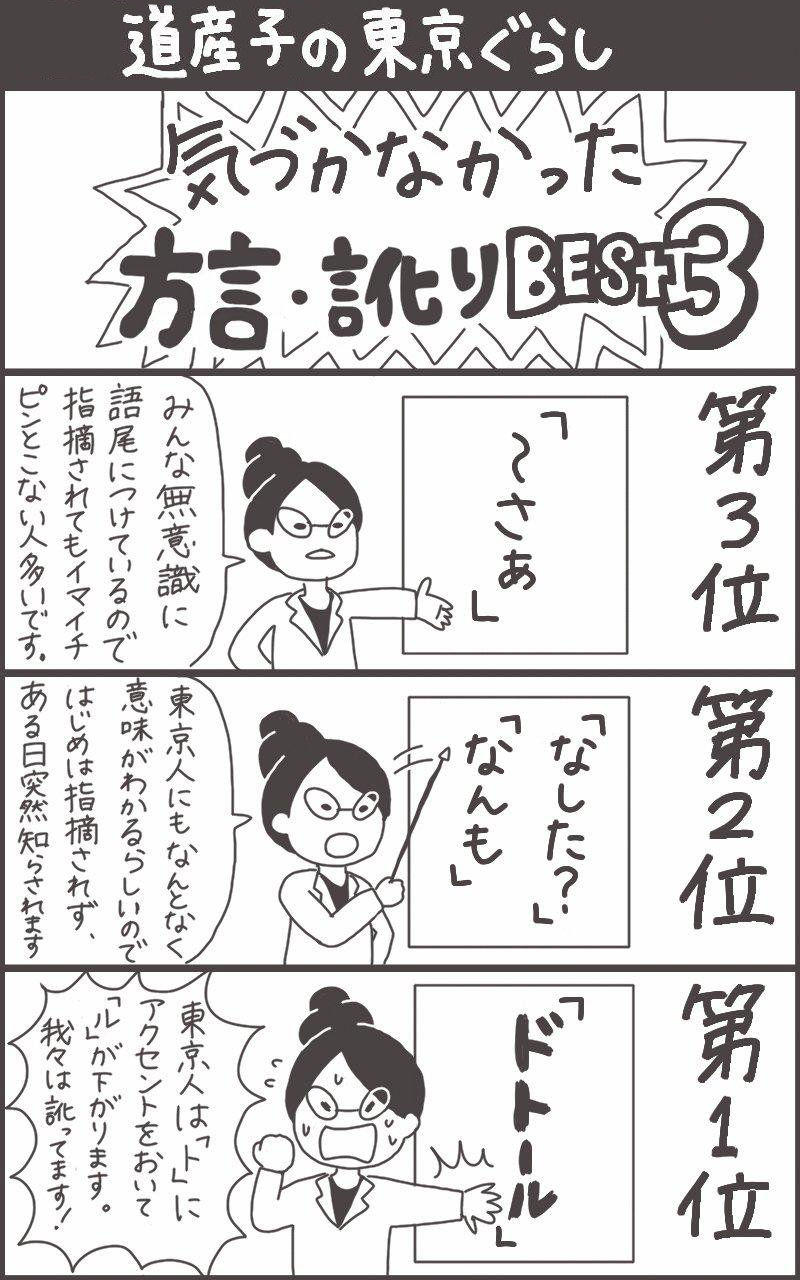 道産子の東京ぐらし
気づかなかった
方言・訛りBEST3
第3位
「〜さぁ」
みんな無意識に
語尾につけているので
指摘されてもイマイチ
ピンとこない人多いです。
第2位
「なした?」
「なんも」
東京人にもなんとなく
意味がわかるらしいので
はじめは指摘されず、
ある日突然知らされます
第1位
「ドトール」
東京人は「ト」に
アクセントをおいて
「ル」が下がります。
我々は訛ってます!